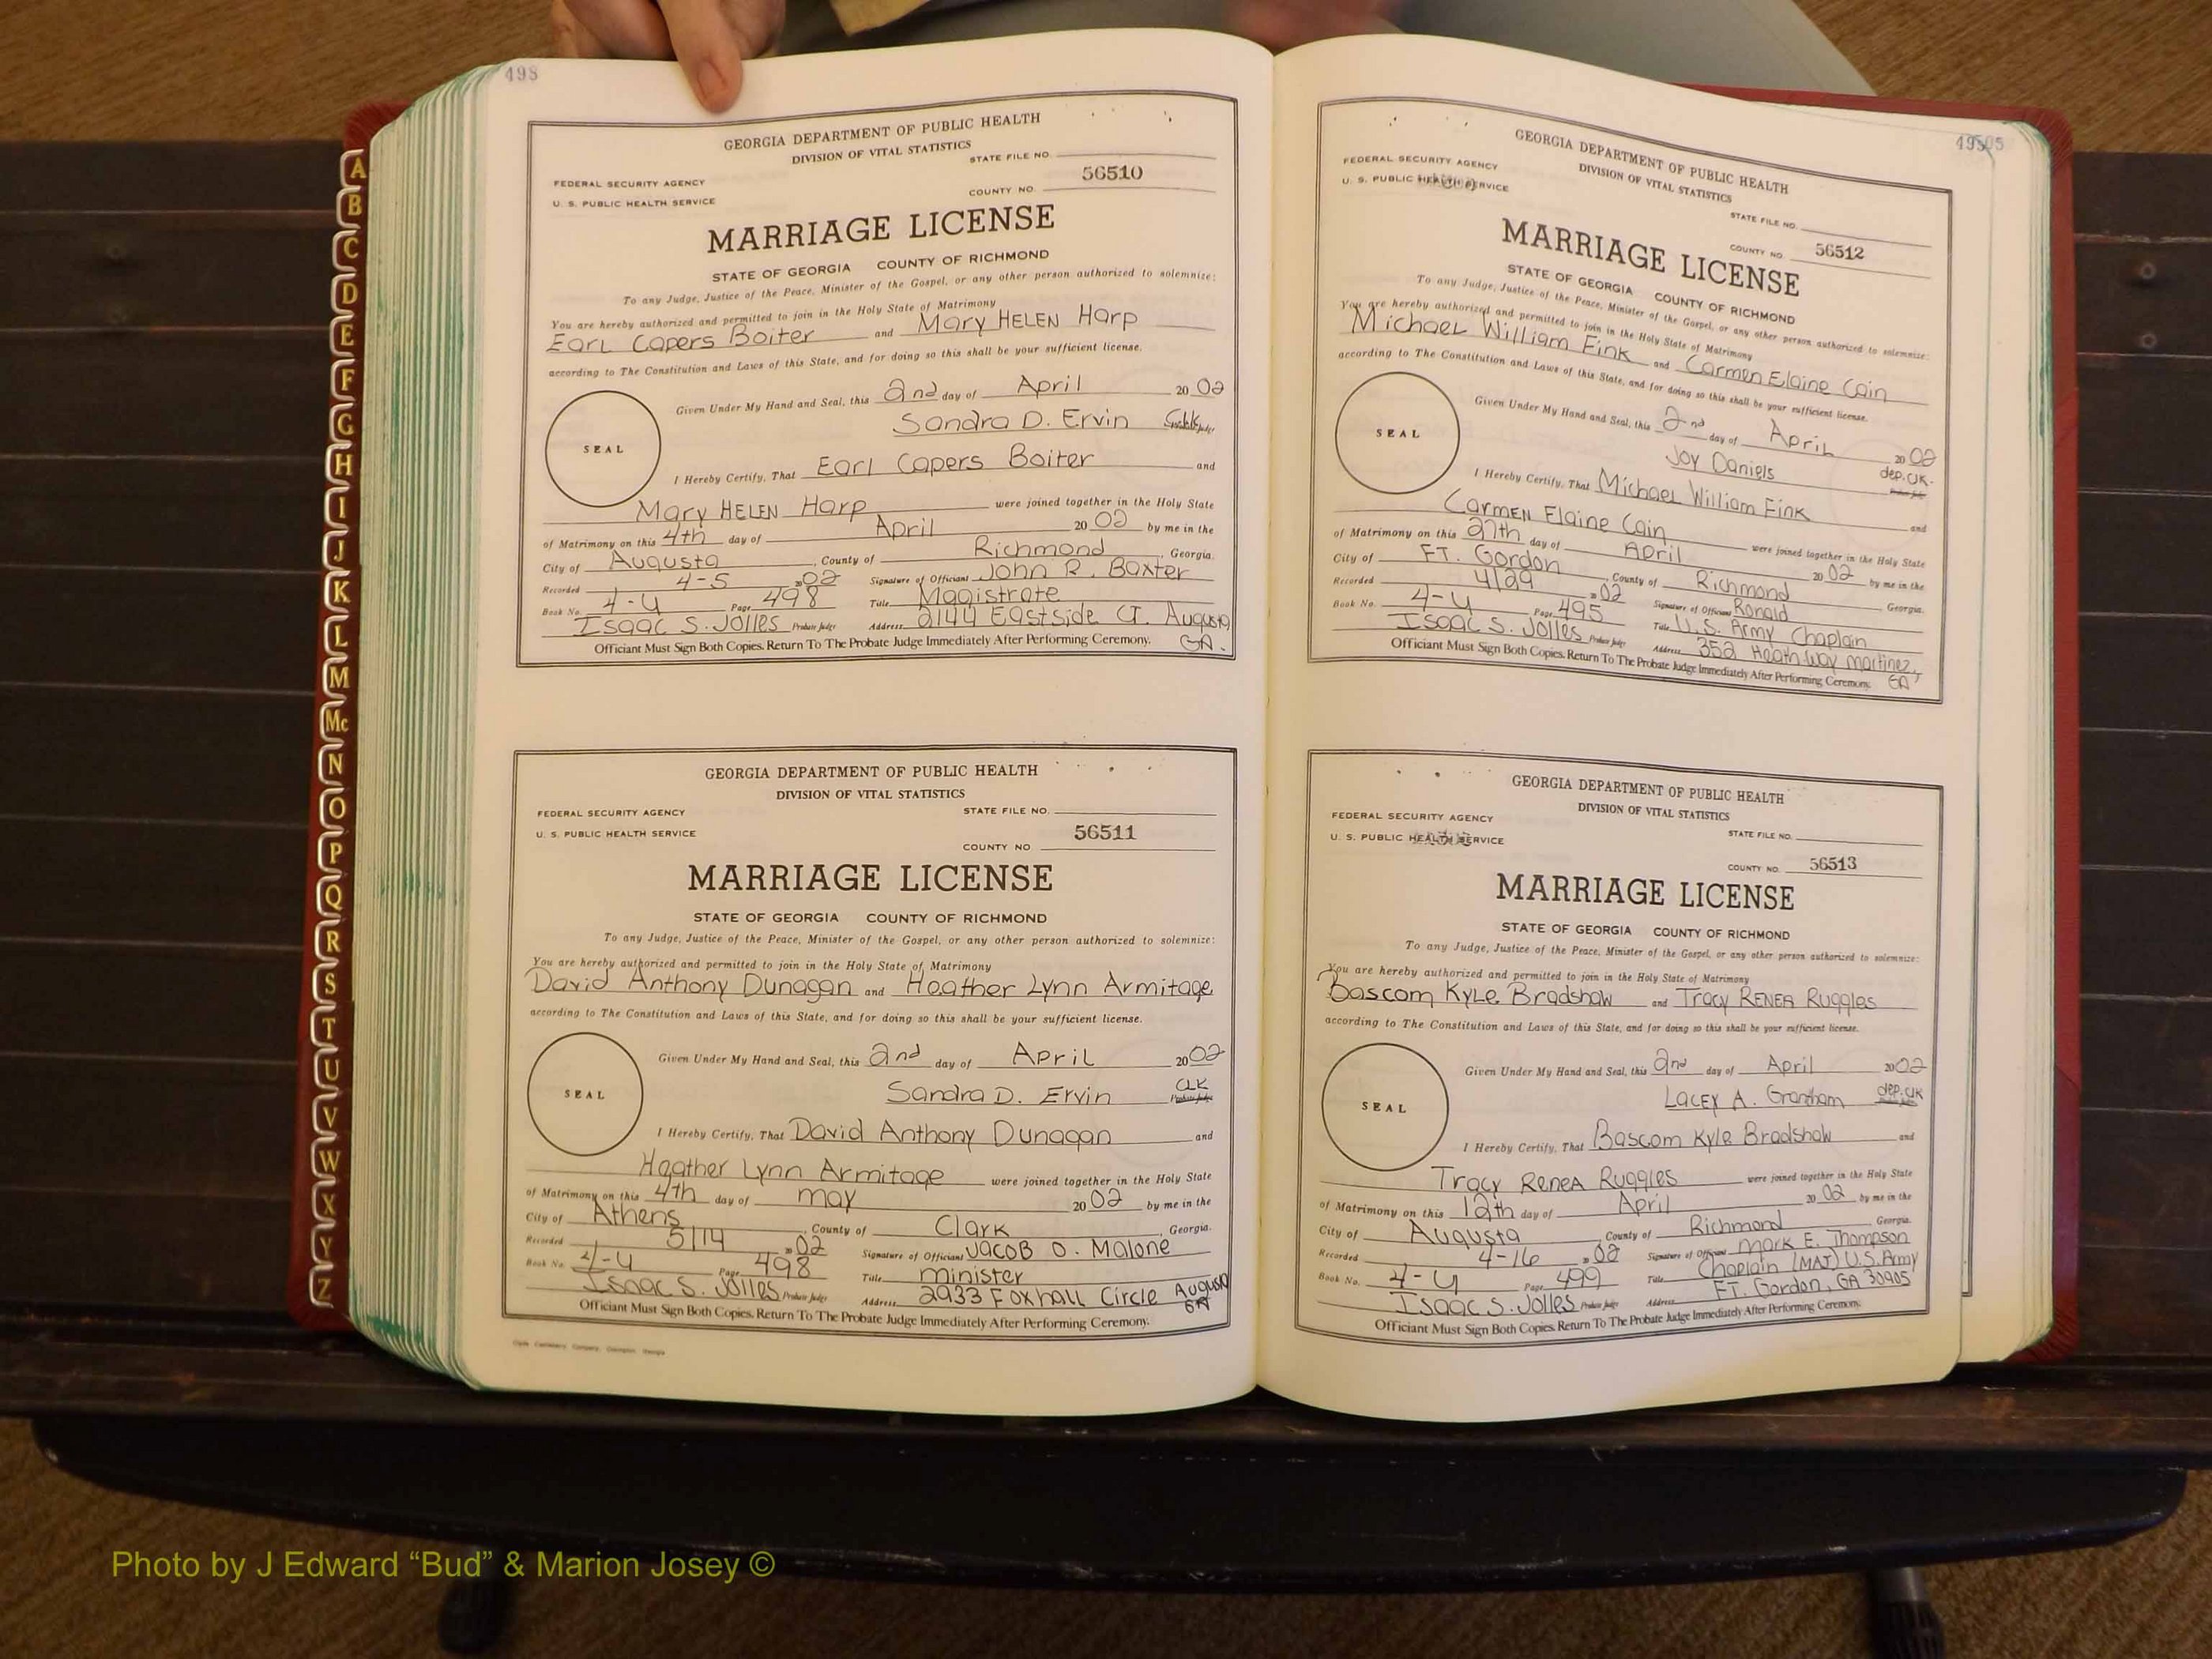 498
GEORGIA DEPARTMENT OF PUBLIC HEALTH
DIVISION OF VITAL STATISTICS
STATE FILE NO.
FEDERAL SECURITY AGENCY
U. S. PUBLIC HEALTH SERVICE
COUNTY NO. 56510
MARRIAGE LICENSE
STATE OF GEORGIA COUNTY OF RICHMOND
To any Judge, Justice of the Peace, Minister of the Gospel, or any other person authorized to solemnize:
You are hereby authorized and permitted to join in the Holy State of Matrimony
Earl Capers Boiter and Mary HELEN Harp
according to The Constitution and Laws of this State, and for doing so this shall be your sufficient license.
Given Under My Hand and Seal, this 2nd day of April 2002
Sandra D. Ervin Clk
SEAL
I Hereby Certify, That Earl Capers Boiter and
Mary HELEN Harp were joined together in the Holy State
of Matrimony on this 4th day of April 2002 by me in the
City of Augusta, County of Richmond, Georgia.
Recorded 4-5 02 Signature of Officiant John R. Baxter
Book No. 4-U Page 498 Title Magistrate
Isaac S. Jolles Probate Judge Address 2144 Eastside CT. Augusta
GA.
Officiant Must Sign Both Copies. Return To The Probate Judge Immediately After Performing Ceremony.
GEORGIA DEPARTMENT OF PUBLIC HEALTH
DIVISION OF VITAL STATISTICS
FEDERAL SECURITY AGENCY STATE FILE NO.
U. S. PUBLIC HEALTH SERVICE
COUNTY NO 56511
MARRIAGE LICENSE
STATE OF GEORGIA COUNTY OF RICHMOND
To any Judge, Justice of the Peace, Minister of the Gospel, or any other person authorized to solemnize:
You are hereby authorized and permitted to join in the Holy State of Matrimony
David Anthony Dunagan and Heather Lynn Armitage
according to The Constitution and Laws of this State, and for doing so this shall be your sufficient license.
Given Under My Hand and Seal, this 2nd day of April 2002
Sandra D. Ervin CLK
Probate Judge
SEAL
I Hereby Certify, That David Anthony Dunagan and
Heather Lynn Armitage were joined together in the Holy State
of Matrimony on this 4th day of may 2002 by me in the
City of Athens, County of Clark, Georgia.
Recorded 5/14 02 Signature of Officiant Jacob O. Malone
Book No. 4-U Page 498 Title minister
Isaac S. Jolles Probate Judge Address 2933 Foxhall Circle Augusta
GA
Officiant Must Sign Both Copies. Return To The Probate Judge Immediately After Performing Ceremony.
GEORGIA DEPARTMENT OF PUBLIC HEALTH
DIVISION OF VITAL STATISTICS
FEDERAL SECURITY AGENCY
U. S. PUBLIC HEALTH SERVICE
STATE FILE NO.
COUNTY NO. 56512
MARRIAGE LICENSE
STATE OF GEORGIA COUNTY OF RICHMOND
To any Judge, Justice of the Peace, Minister of the Gospel, or any other person authorized to solemnize:
You are hereby authorized and permitted to join in the Holy State of Matrimony
Michael William Fink and Carmen Elaine Cain
according to The Constitution and Laws of this State, and for doing so this shall be your sufficient license.
Given Under My Hand and Seal, this 2nd day of April 2002
Joy Daniels dep. clk.
SEAL
I Hereby Certify, That Michael William Fink and
Carmen Elaine Cain were joined together in the Holy State
of Matrimony on this 27th day of April 2002 by me in the
City of FT. Gordon, County of Richmond Georgia.
Recorded 4/29 02 Signature of Officiant Ronald
Book No. 4-U Page 495 Title U.S. Army Chaplain
Isaac S. Jolles Probate Judge Address 352 Heath Way martinez,
GA
Officiant Must Sign Both Copies. Return To The Probate Judge Immediately After Performing Ceremony.
GEORGIA DEPARTMENT OF PUBLIC HEALTH
DIVISION OF VITAL STATISTICS
FEDERAL SECURITY AGENCY
U. S. PUBLIC HEALTH SERVICE
STATE FILE NO.
COUNTY NO. 56513
MARRIAGE LICENSE
STATE OF GEORGIA COUNTY OF RICHMOND
To any Judge, Justice of the Peace, Minister of the Gospel, or any other person authorized to solemnize:
You are hereby authorized and permitted to join in the Holy State of Matrimony
Bascom Kyle Bradshaw and Tracy RENEA Ruggles
according to The Constitution and Laws of this State, and for doing so this shall be your sufficient license.
Given Under My Hand and Seal, this 2nd day of April 2002
Lacey A. Grantham dep. clk
SEAL
I Hereby Certify, That Bascom Kyle Bradshaw and
Tracy RENEA Ruggles were joined together in the Holy State
of Matrimony on this 12th day of April 2002 by me in the
City of Augusta, County of Richmond, Georgia.
Recorded 4-16 02 Signature of Officiant Mark E. Thompson
Book No. 4-U Page 499 Title Chaplain (MAJ) U.S. Army
Isaac S. Jolles Probate Judge Address FT. Gordon, GA 30905
Officiant Must Sign Both Copies. Return To The Probate Judge Immediately After Performing Ceremony.
A
B
C
D
E
F
G
H
I
J
K
L
M
Mc
N
O
P
Q
R
S
T
U
V
W
X
Y
Z
Photo by J Edward “Bud” & Marion Josey ©